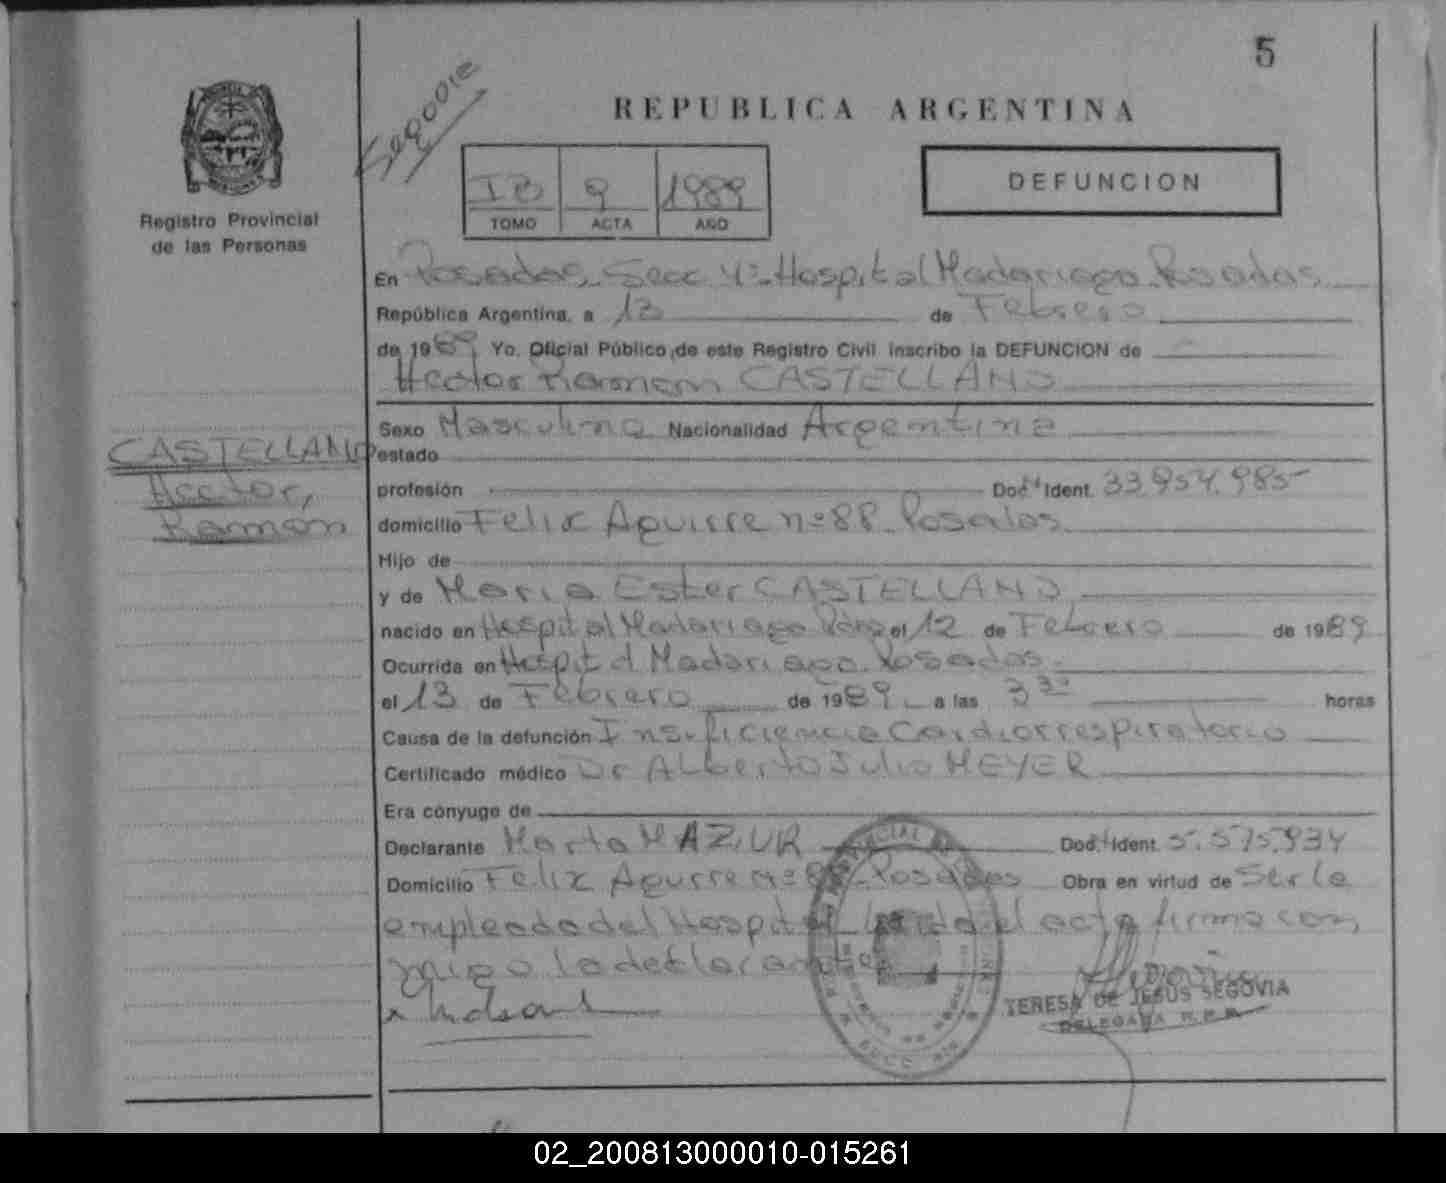 5
Segovia
REPUBLICA ARGENTINA
Registro Provincial
de las Personas
IB 9 1989
TOMO ACTA AÑO
DEFUNCION
En Posadas, Secc 4ª Hospital Madariaga Posadas
República Argentina, a 13 de Febrero
de 1989 Yo, Oficial Público de este Registro Civil inscribo la DEFUNCION de
Hector Ramon CASTELLANO
CASTELLANO
Hector,
Ramon
Sexo Masculino Nacionalidad Argentina
estado
profesión Doc. Ident. 33.954.985
domicilio Felix Aguirre nº 88 Posadas
Hijo de
y de Maria Ester CASTELLANO
nacido en Hospital Madariaga Pdas el 12 de Febrero de 1989
Ocurrida en Hospital Madariaga Posadas
el 13 de Febrero de 1989 a las 3 30 horas
Causa de la defunción Insuficiencia Cardiorrespiratoria
Certificado médico Dr Alberto Julio MEYER
Era cónyuge de
Declarante Marta MAZUR Doc. Ident. 5.575.934
Domicilio Felix Aguirre nº 88 Posadas Obra en virtud de Ser la
empleada del Hospital Leida el acta firma con
migo la declarante
TERESA DE JESUS SEGOVIA
DELEGADA R.P.P.
02_200813000010-015261